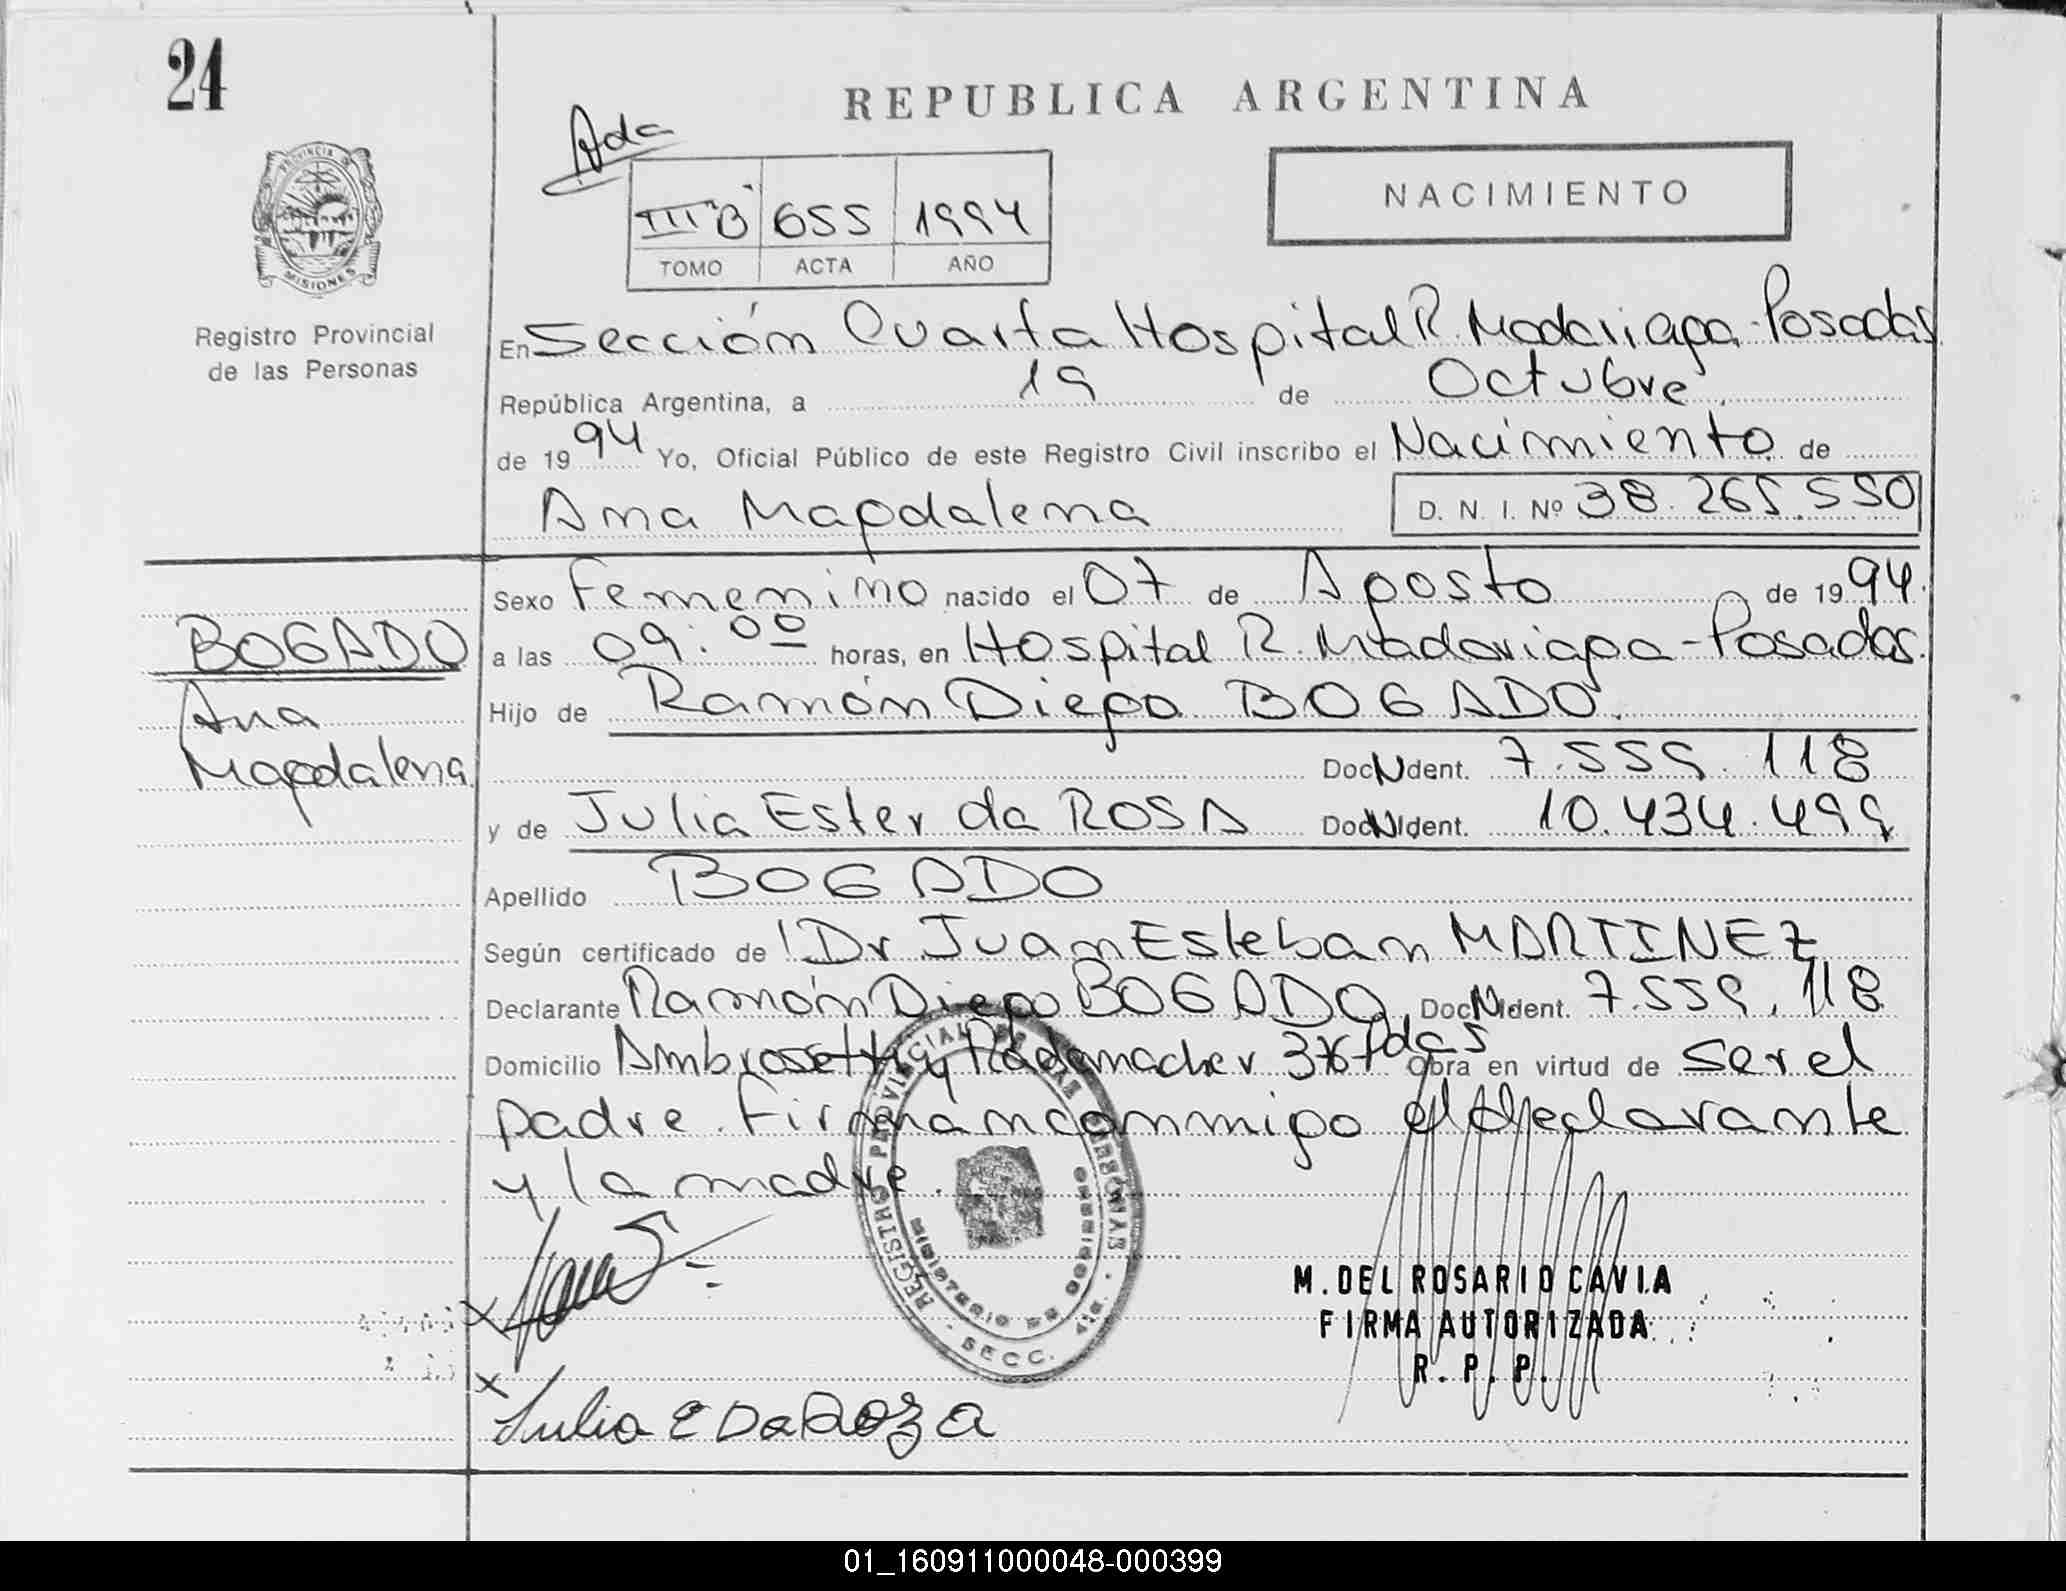 24
REPUBLICA ARGENTINA
Ada
NACIMIENTO
III"B" 655 1994
TOMO ACTA AÑO
PROVINCIA DE
MISIONES
Registro Provincial
de las Personas
En Sección Cuarta Hospital R. Madariaga-Posadas
República Argentina, a 19 de Octubre
de 1994 Yo, Oficial Público de este Registro Civil inscribo el Nacimiento de
Ana Magdalena D. N. I. Nº 38.265.550
Sexo Femenino nacido el 07 de Agosto de 1994
BOGADO a las 09:00 horas, en Hospital R. Madariaga-Posadas.
Ana Hijo de Ramón Diego BOGADO.
Magdalena DocNIdent. 7.559.118
y de Julia Ester da ROSA DocNIdent. 10.434.499
Apellido BOGADO
Según certificado de Dr Juan Esteban MARTINEZ
Declarante Ramón Diego BOGADO, DocNIdent. 7.559.118
Domicilio Ambrossetti y Rademacher Pdas Obra en virtud de ser el
padre. Firman conmigo el declarante
y la madre.
REGISTRO PROVINCIAL DE LAS PERSONAS
MINISTERIO DE GOBIERNO
SECC. 4ta.
M. DEL ROSARIO CAVIA
FIRMA AUTORIZADA
R. P. P.
x
x
Julia E Da Roza
01_160911000048-000399